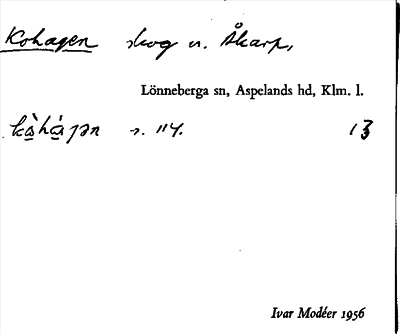 Kohagen skog n. Åkarp,
Lönneberga sn, Aspelands hd, Klm. l.
s. 114. 13
Ivar Modéer 1956